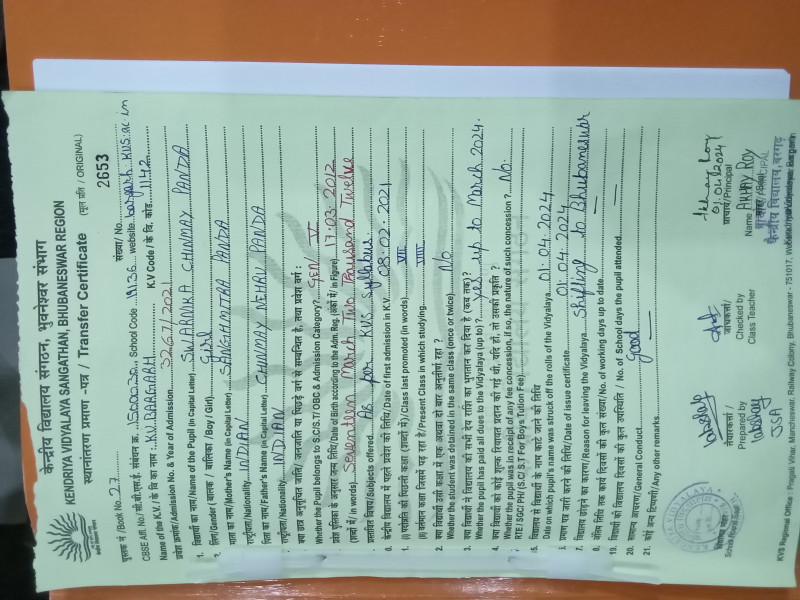 केन्द्रीय विद्यालय संगठन, भुवनेश्वर संभाग
KENDRIYA VIDYALAYA SANGATHAN, BHUBANESWAR REGION
स्थानांतरण प्रमाण -पत्र / Transfer Certificate (मूल प्रति / ORIGINAL)
2653
पुस्तक नं /(Book No. 27 संख्या/ No.
CBSE Affl. No./ 1500030 School Code 19136 website bargarh.kvs.ac.in
Name of the K.V. / के वि का नाम : K.V. BARGARH K.V Code / के वि. कोड 1142
प्रवेश क्रमांक/Admission No. & Year of Admission 3267/2021
1. विद्यार्थी का नाम/Name of the Pupil (in Capital Letter) SWARNIKA CHINMAY PANDA
लिंग/Gender / बालक / बालिका /Boy / Girl Girl
माता का नाम/Mother's Name (in Capital Letter) SANGHMITRA PANDA
राष्ट्रीयता/Nationality INDIAN
पिता का नाम/Father's Name (in Capital Letter) CHINMAY NEHRU PANDA
राष्ट्रीयता/Nationality INDIAN
क्या छात्र अनुसूचित जाति/ जनजाति या पिछड़े वर्ग से सम्बन्धित है, तथा प्रवेश वर्ग :
Whether the Pupil belongs to S.C/S.T/ OBC & Admission Category? GEN / V
Date of Birth according to the Adm. Reg. (अंकों में/ in Figure) 17.03.2012
(शब्दों में/ in words) Seventeen March Two Thousand Twelve
प्रस्तावित विषय/Subjects offered As per KVS Syllabus.
Date of first admission in K.V. 08.02.2021
1. (i) Class last promoted (in words) VII
(ii) वर्तमान कक्षा जिसमें पढ़ रहा है/ Present Class in which studying VIII
2. क्या विद्यार्थी उसी कक्षा में एक अथवा दो बार अनुतीर्ण रहा ?
Whether the student was detained in the same class (once or twice) No
3. क्या विद्यार्थी ने विद्यालय को सभी देय राशि का भुगतान कर दिया है (कब तक)?
Whether the pupil has paid all dues to the Vidyalaya (up to) ? Yes up to March 2024.
4. क्या विद्यार्थी को कोई शुल्क रियायत प्रदान की गई थी, यदि हाँ, तो उसकी प्रकृति ?
Whether the pupil was in receipt of any fee concession, if so, the nature of such concession ? No.
RTE/ SGC/ PH/ (S.C/ S.T For Boys Tution Fee)
विद्यालय से विद्यार्थी के नाम काटे जाने की तिथि
Date on which pupil's name was struck off the rolls of the Vidyalaya 01.04.2024
प्रमाण पत्र जारी करने की तिथि/Date of issue certificate 01.04.2024
विद्यालय छोड़ने का कारण/Reason for leaving the Vidyalaya Shifting to Bhubaneswar
No. of working days up to date —
19. No. of School days the pupil attended —
20. सामान्य आचरण/ General Conduct Good
21. कोई अन्य टिप्पणी/ Any other remarks —
Prepared by
JSA
जाँचकर्ता/
Checked by
Class Teacher
01.04.2024
प्राचार्य/Principal
Name AKHAY ROY
PRINCIPAL
केन्द्रीय विद्यालय, बरगढ़
Kendriya Vidyalaya, Bargarh
KVS Regional Office : Pragati Vihar, Mancheswar, Railway Colony, Bhubaneswar - 751017,